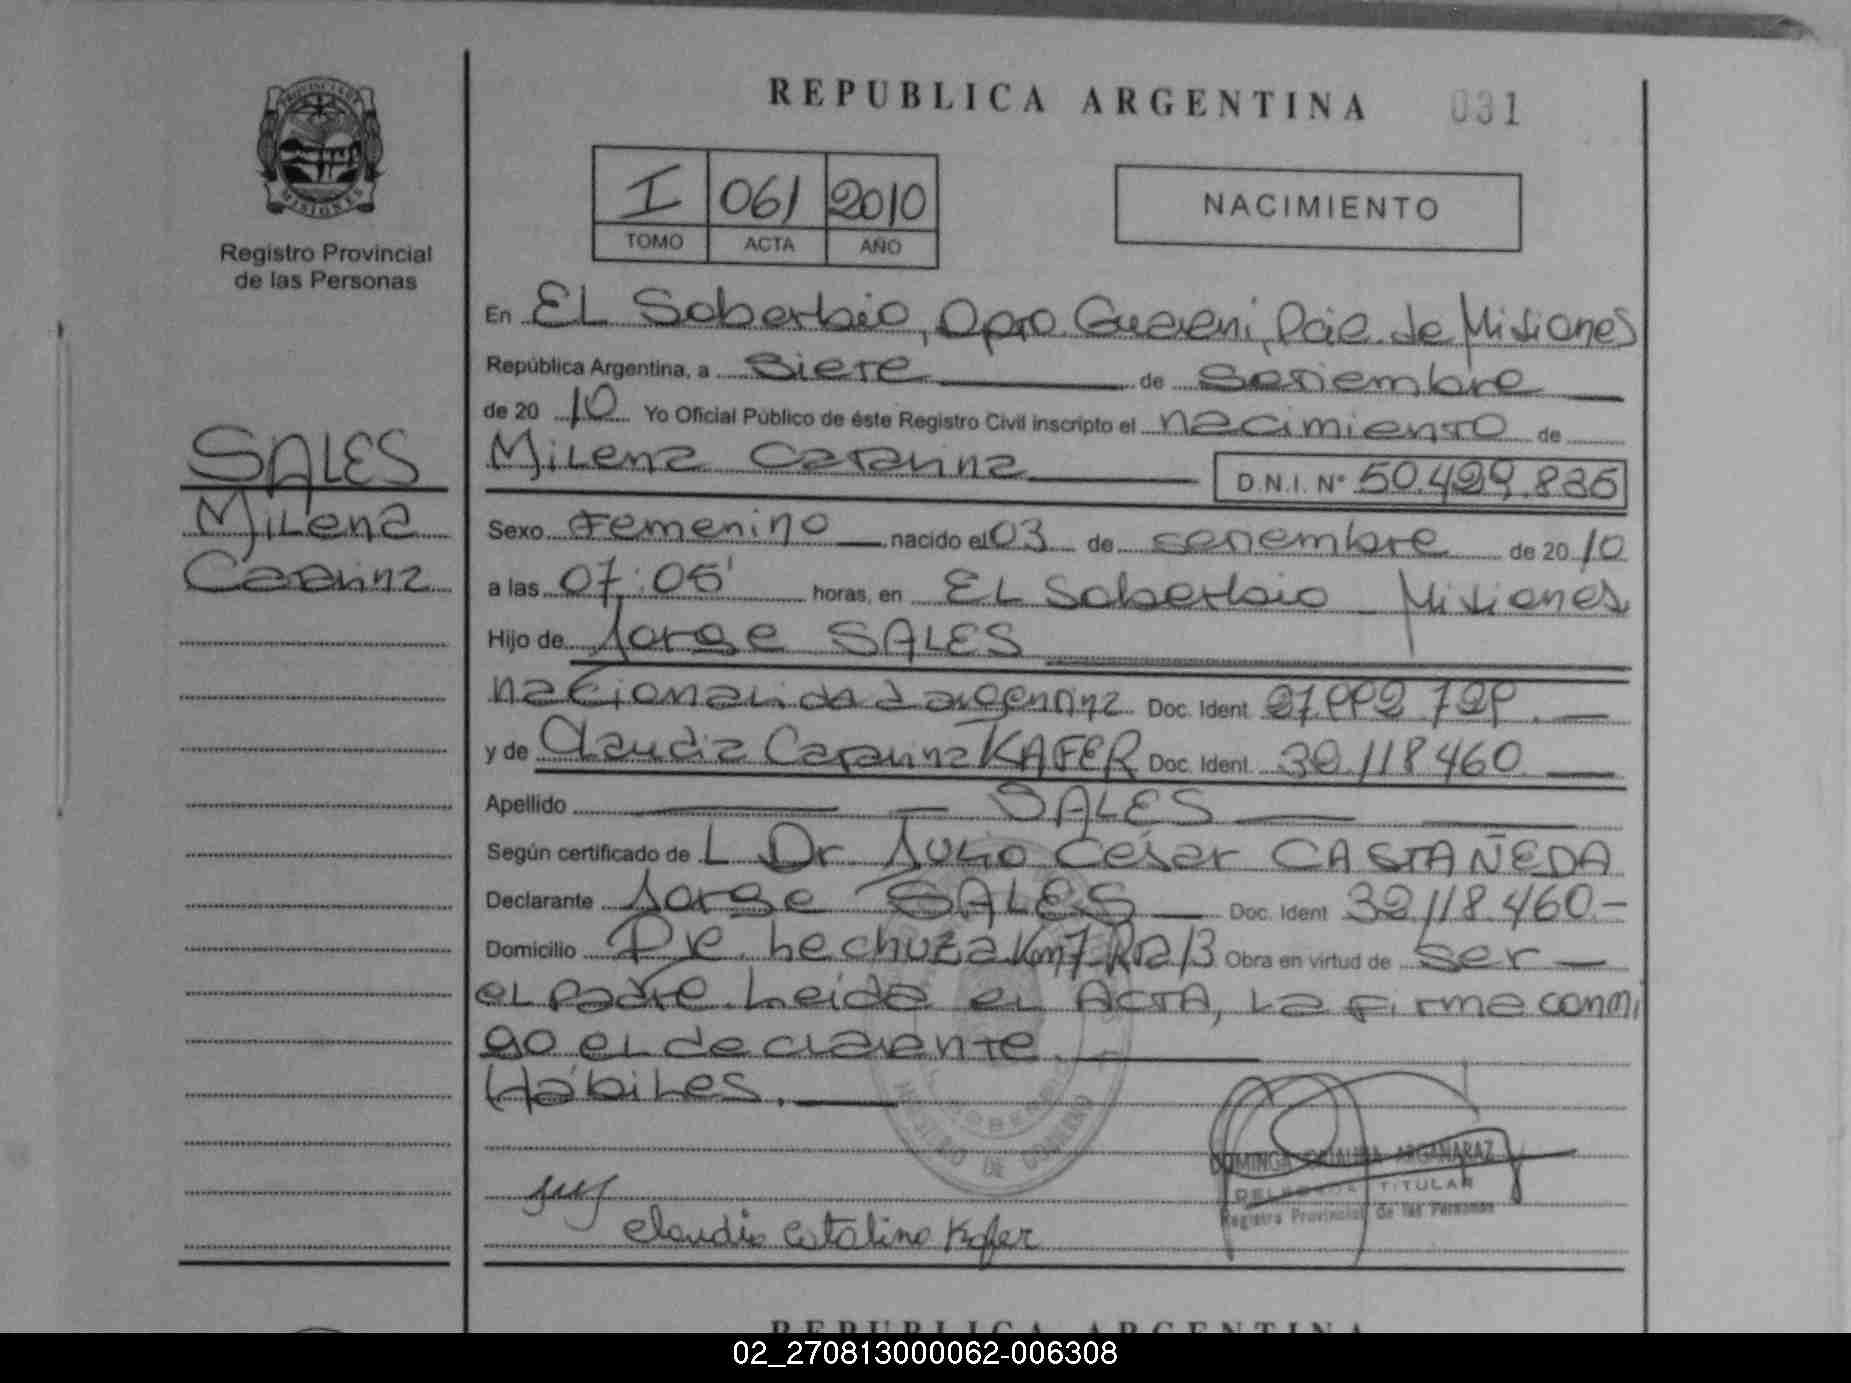 REPUBLICA ARGENTINA 031
PROVINCIA DE MISIONES
Registro Provincial
de las Personas
I 061 2010
TOMO ACTA AÑO
NACIMIENTO
En EL Soberbio, Dpto Guarani, Pcia. de Misiones
República Argentina, a Siete de Septiembre
de 2010 Yo Oficial Público de éste Registro Civil inscripto el nacimiento de
Milena Catalina D.N.I. Nº 50.499.835
SALES
Milena
Catalina
Sexo Femenino nacido el 03 de septiembre de 2010
a las 07:05' horas, en EL Soberbio Misiones
Hijo de Jorge SALES
nacionalidad argentina Doc. Ident.
y de Claudia Catalina KAFER Doc. Ident. 32.118.460
Apellido SALES
Según certificado de L Dr Julio César CASTAÑEDA
Declarante Jorge SALES Doc. Ident 32.118.460-
Domicilio Pje. Lechuza Km7 R213 Obra en virtud de ser
el padre. Leida el ACTA, la firma conmi
go el declarante.
Hábiles.
MINISTERIO DE GOBIERNO
Claudia Catalina Kafer
DOMINGA CATALINA ARGAÑARAZ
DELEGADA TITULAR
Registro Provincial de las Personas
REPUBLICA ARGENTINA
02_270813000062-006308